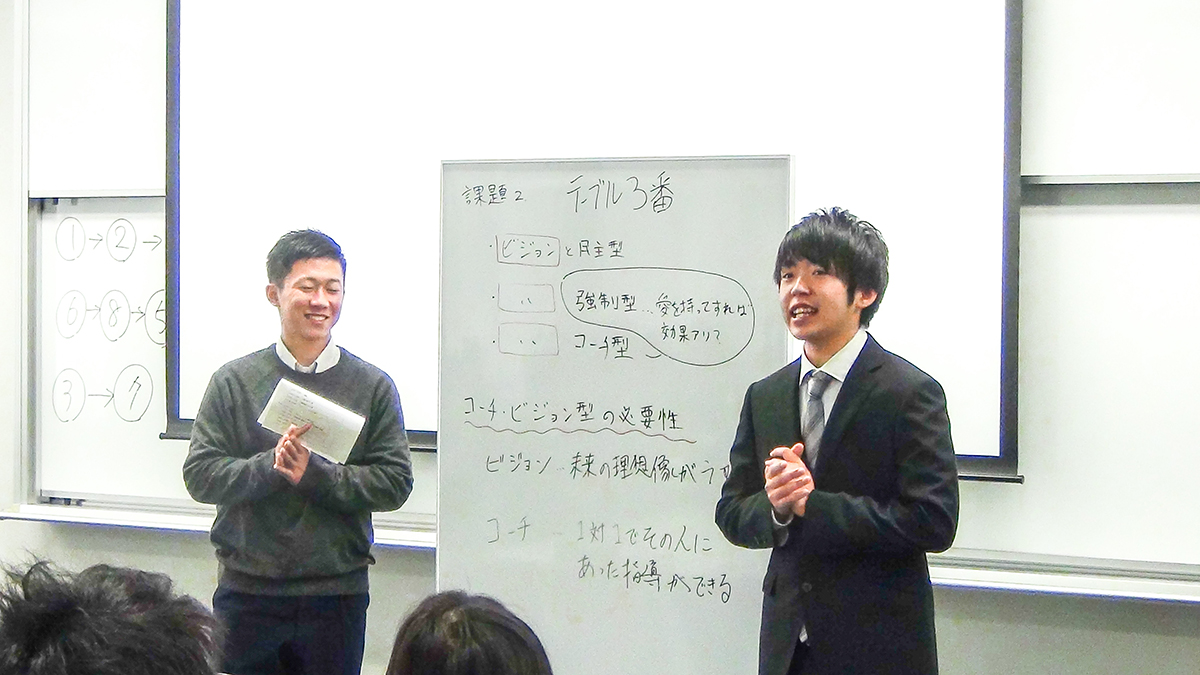 課題2 テーブル3番
・ビジョンと民主型
・〃 強制力型…愛を持ってすれば
効果アリ?
・〃 コーチ型
コーチ・ビジョン型の必要性
ビジョン…未来の理想像が
コーチ … 1対1でその人に
あった指導ができる
①→②→
⑥→⑧→⑤
③→⑦